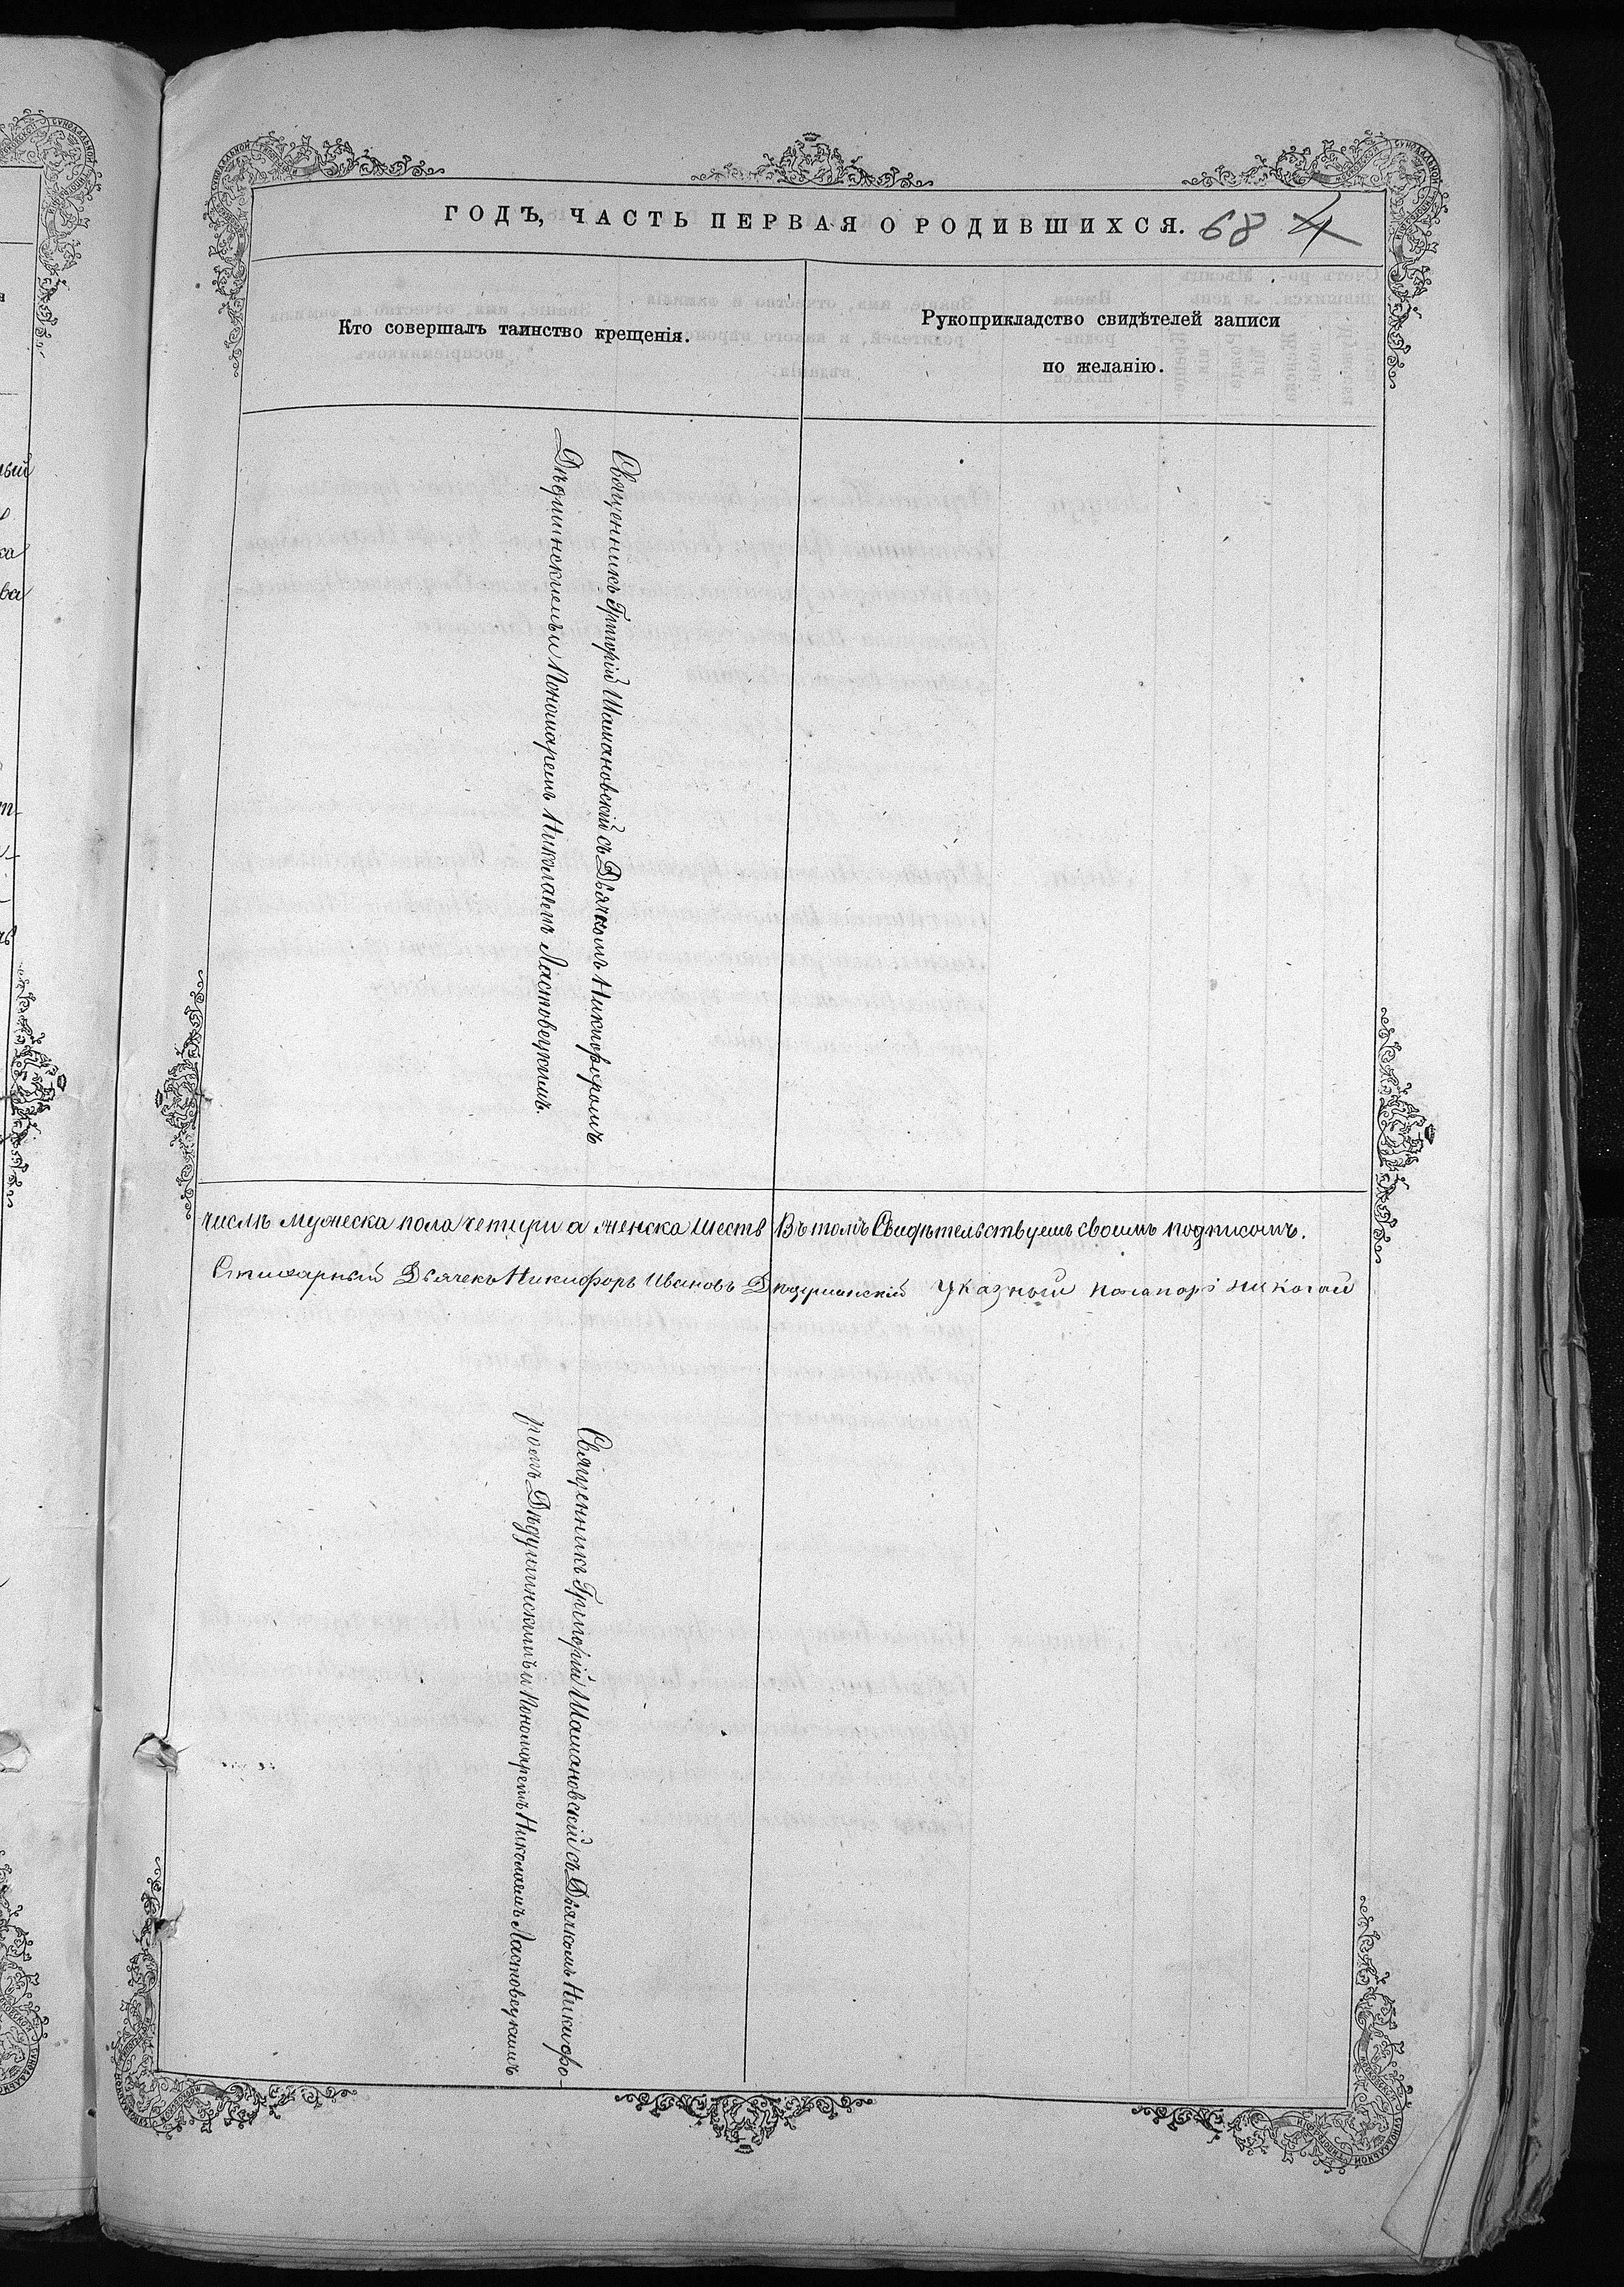 ГОДЪ, ЧАСТЬ ПЕРВАЯ О РОДИВШИХСЯ. 68 4
Кто совершалъ таинство крещенія.
Рукоприкладство свидѣтелей записи
по желанію.
Священникъ Григорій Шамановскій съ Дьячкомъ Никифоромъ
и Пономаремъ Николаемъ Ластовецкимъ.
числѣ мужеска пола четыри а женска шесть Въ томъ Свидѣтельствуемъ своимъ подписомъ.
Стихарный Дьячекъ Никифоръ Ивановъ Указный Николай
Священникъ Григорій Шамановскій съ Дьячкомъ Никифо-
ромъ и Пономаремъ Николаемъ Ластовецкимъ